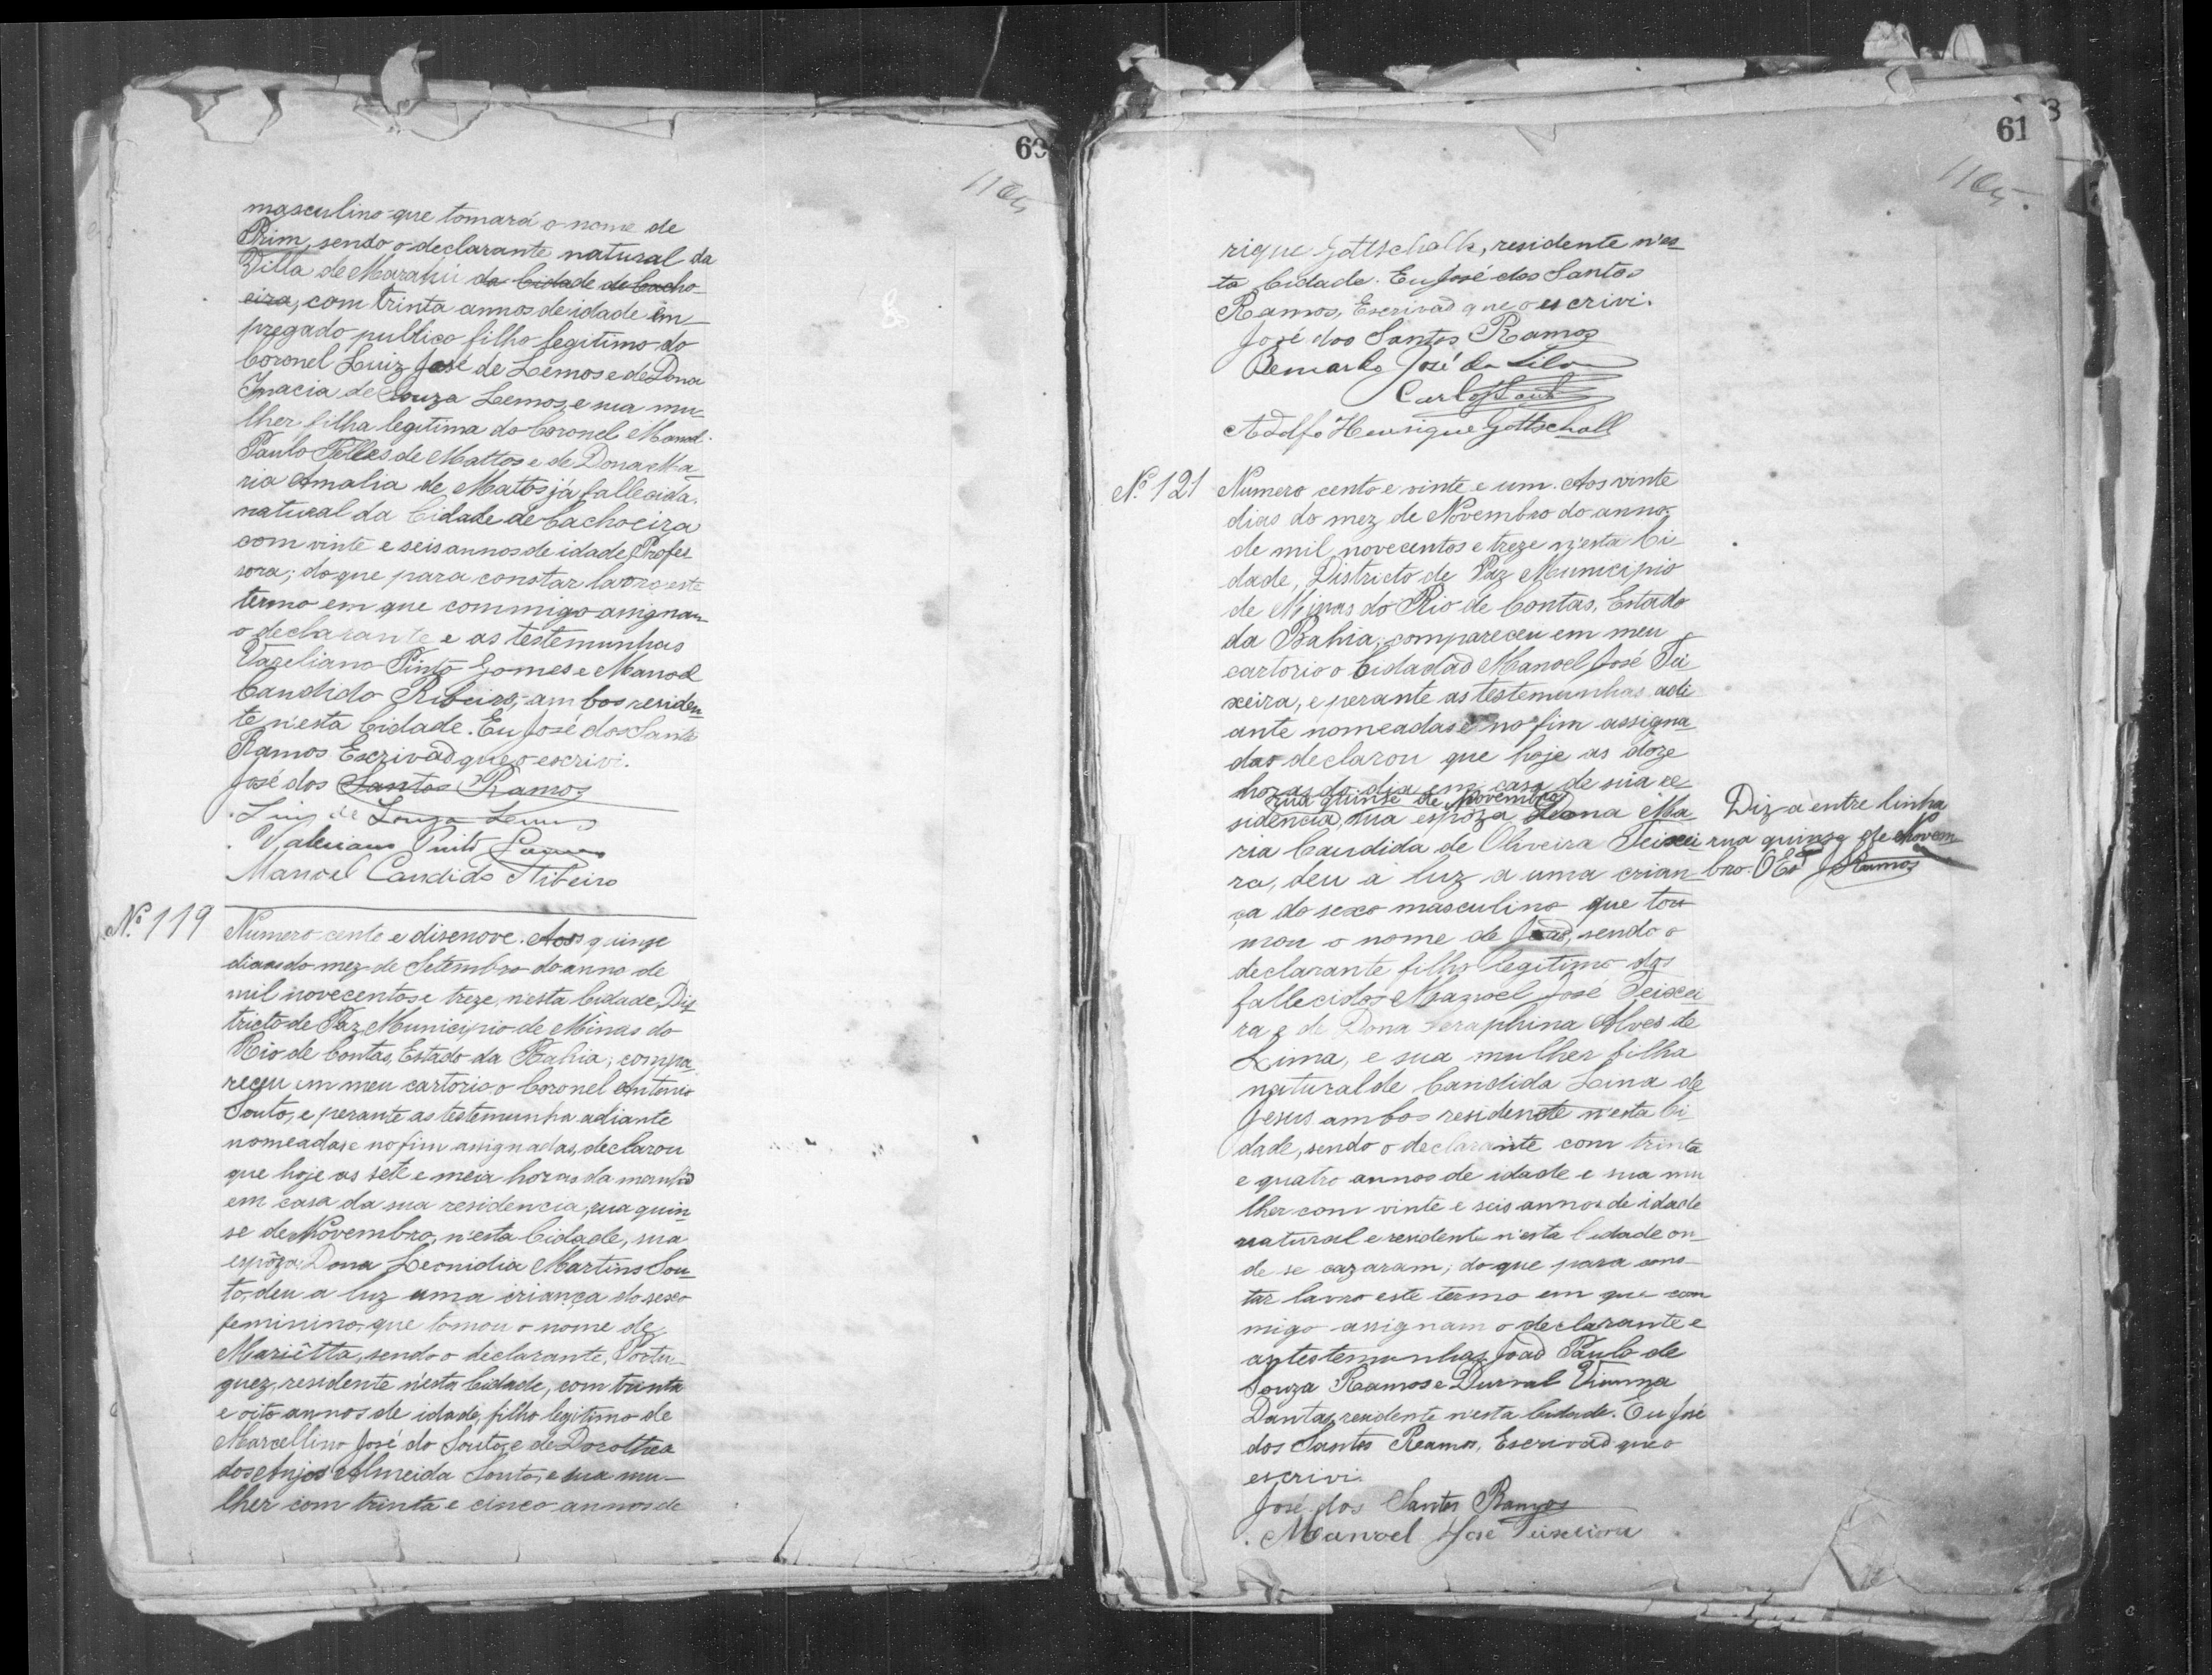 60
masculino que tomará o nome de
Prim, sendo o declarante natural da
Villa de Marahú da Cidade de Cacho-
eira, com trinta annos de idade em-
pregado publico filho legitimo do
Coronel Luiz José de Lemos e de Dona
Ignacia de Souza Lemos, e sua mu-
lher filha legitima do Coronel Manoel
Paulo Telles de Mattos e de Dona Ma-
ria Amalia de Mattos já fallecida,
natural da Cidade de Cachoeira
com vinte e seis annos de idade, Profes-
sora; do que para constar lavro este
termo em que commigo assignam
o declarante e as testemunhas
Pinto Gomes e Manoel
Candido Ribeiro, ambos residen-
te n'esta Cidade. Eu José dos Santos
Ramos Escrivaõ que o escrivi.
José dos Santos Ramos
Luiz de Souza Lemos
Valeriano Pinto Gomes
Manoel Candido Ribeiro
Nº 119
Numero cento e disenove. Aos quinze
dias do mez de Setembro do anno de
mil novecentos e treze, n'esta Cidade, Dis-
tricto de Paz, Municipio de Minas do
Rio de Contas, Estado da Bahia; compa-
receu em meu cartorio o Coronel Antonio
Souto, e perante as testemunha adiante
nomeadas e no fim assignadas, declarou
que hoje as sete e meia horas da manhã
em casa da sua residencia, rua quin-
se de Novembro, n'esta Cidade, sua
espôza Dona Leonidia Martins Sou-
to, deu a luz uma criança do sexo
feminino que tomou o nome de
Mariêtta, sendo o declarante, Portu-
guez, residente n'esta Cidade, com trinta
e oito annos de idade, filho legitimo de
Marcellino José do Souto, e de Dorothea
dos Anjos Almeida Souto, e sua mu-
lher com trinta e cinco annos de
61
rique Gottschalk, residente n'es-
ta Cidade. Eu José dos Santos
Ramos, Escrivaõ que o escrivi.
José dos Santos Ramos
Bernardo José da Silva
Carlos Souto
Adolfo Henrique Gottschall
Nº 121
Numero cento e vinte e um. Aos vinte
dias do mez de Novembro do anno
de mil novecentos e treze n'esta Ci-
dade, Districto de Paz Municipio
de Minas do Rio de Contas, Estado
da Bahia, compareceu em meu
cartorio o Cidadaõ Manoel José Tei-
xeira, e perante as testemunhas adi-
ante nomeadas e no fim assigna-
das declarou que hoje as doze
horas do dia em casa de sua re-
rua quinse de Novembro
sidencia, sua espoza Dona Ma-
ria Candida de Oliveira Teixei-
ra, deu á luz a uma crian-
ça do sexo masculino que tou-
mou o nome de Joaõ, sendo o
declarante filho legitimo dos
fallecidos Manoel José Teixei-
ra e de Dona Seraphina Alves de
Lima, e sua mulher filha
natural de Candida Lina de
Jesus ambos residente n'esta Ci-
dade, sendo o declarante com trinta
e quatro annos de idade e sua mu-
lher com vinte e seis annos de idade
natural e residente n'esta Cidade on-
de se cazaram; do que para cons-
tar lavro este termo em que com
migo assignam o declarante e
as testemunhas Joaõ Paulo de
Souza Ramos e Durval Vianna
Dantas, residente n'esta Cidade. Eu José
dos Santos Ramos, Escrivaõ que o
escrivi.
José dos Santos Ramos
Manoel José Teixeira
Diz a entre linha
rua quinse de Novem-
bro. O Esº JSRamos